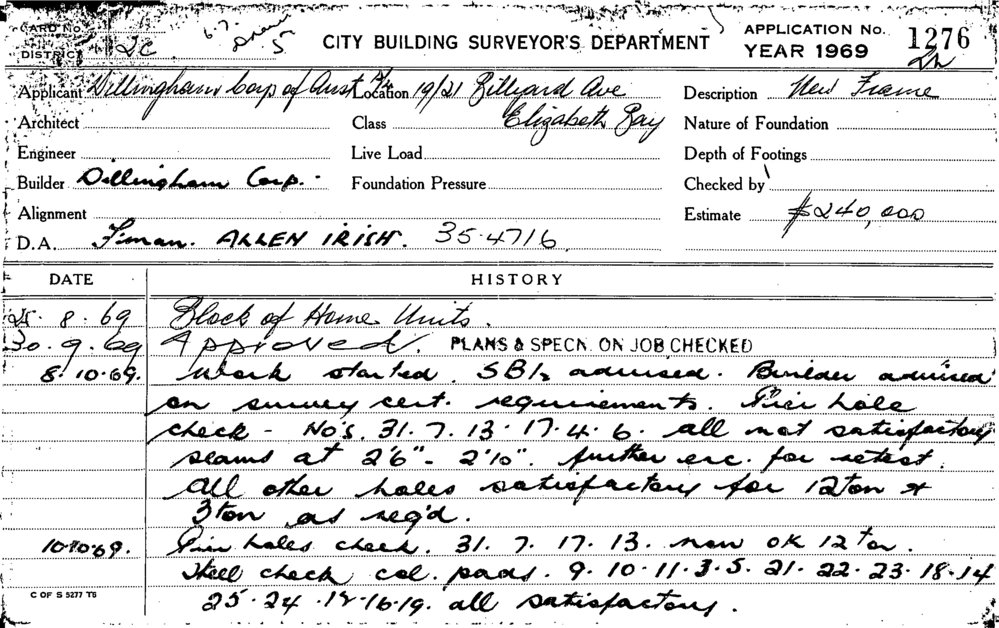 CARD No.
DISTRICT 2C 6.7. 5
CITY BUILDING SURVEYOR'S DEPARTMENT
APPLICATION No. 1276
YEAR 1969
Applicant Dillingham Corp of Aust P/L Location 19/21 Billyard Ave Description New Frame
Architect Class Elizabeth Bay Nature of Foundation
Engineer Live Load Depth of Footings
Builder Dillingham Corp. Foundation Pressure Checked by
Alignment Estimate $240,000
D.A. F'man. ALLEN IRISH. 35.4716
DATE HISTORY
25. 8. 69 Block of Home Units.
30. 9. 69 Approved. PLANS & SPECN. ON JOB CHECKED
8. 10.69. Work started. SBI's advised. Builder advised
on survey cert. requirements. Pier hole
check - No's. 31. 7. 13. 17. 4. 6. all not satisfactory
seams at 2'6" - 2'10". further exc. for retest.
All other holes satisfactory for 12 ton &
3 ton as req'd.
10.10.69. Pier holes check. 31. 7. 17. 13. now OK 12 ton.
Steel check col. pads. 9. 10. 11. 3. 5. 21. 22. 23. 18. 14
25. 24. 12. 16. 19. all satisfactory.
C OF S 5277 TS